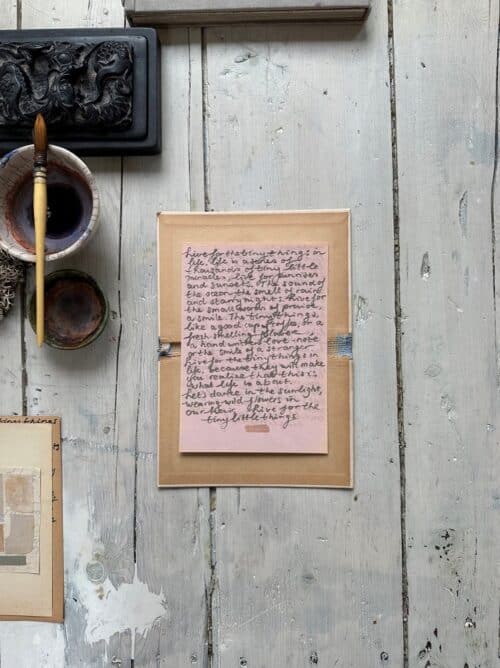 Live for the tiny things in
life. Life is a series of
thousands of tiny little
miracles, live for sunrises
and sunsets. The sound of
the ocean, the smell of rain
and starry nights. Live for
the small words of praise,
a smile. The tiny things,
like a good cup of coffee, or a
fresh smelling flower,
a hand written love-note
or the smile of a stranger.
Live for the tiny things in
life. because they will make
you realize that this is
what life is about.
Let's dance in the sunlight,
wearing wild flowers in
our hair. Live for the
tiny little things